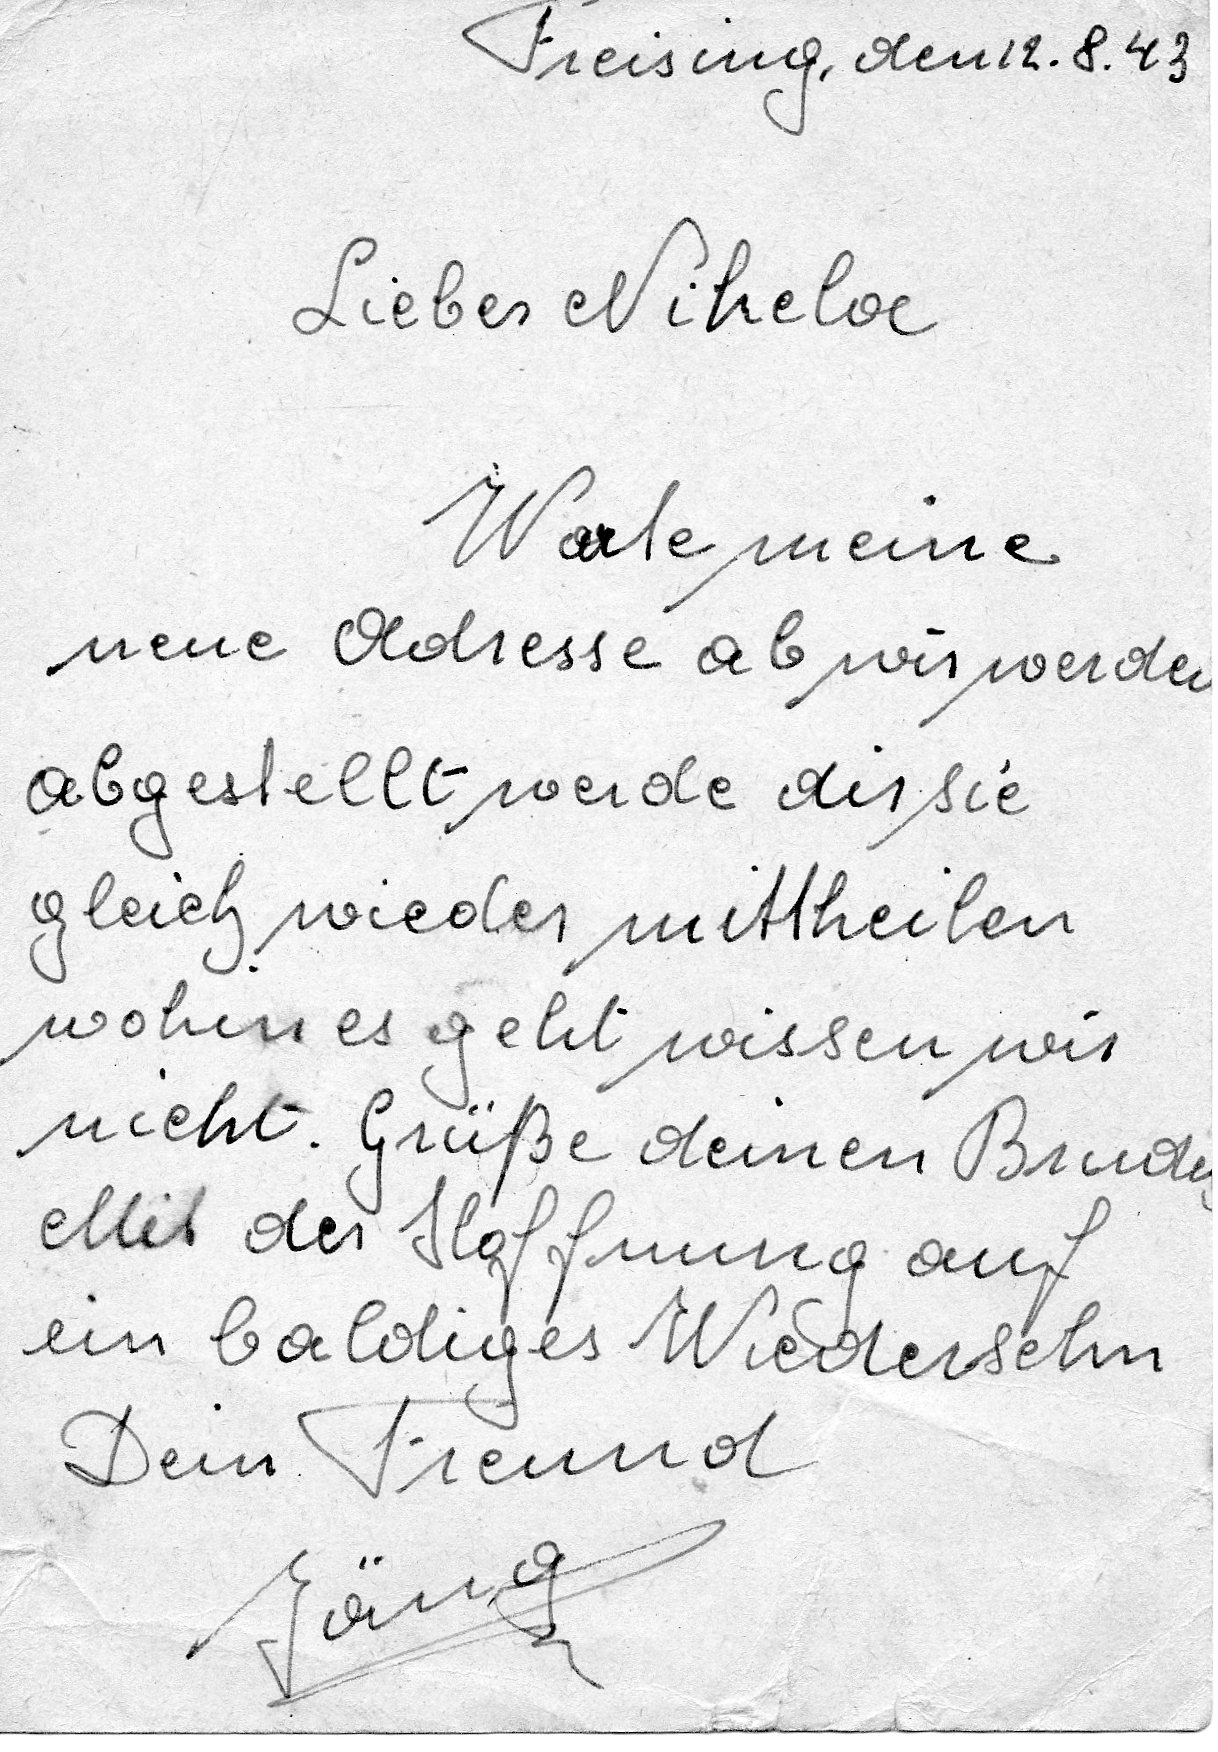 Freising, den 12.8.43
Lieber Nikeloe
Warte meine
neue Adresse ab wir werden
abgestellt werde dir sie
gleich wieder mittheilen
wohin es geht wissen wir
nicht. Grüße deinen Bruder
Mit der Hoffnung auf
ein baldiges Wiedersehn
Dein Freund